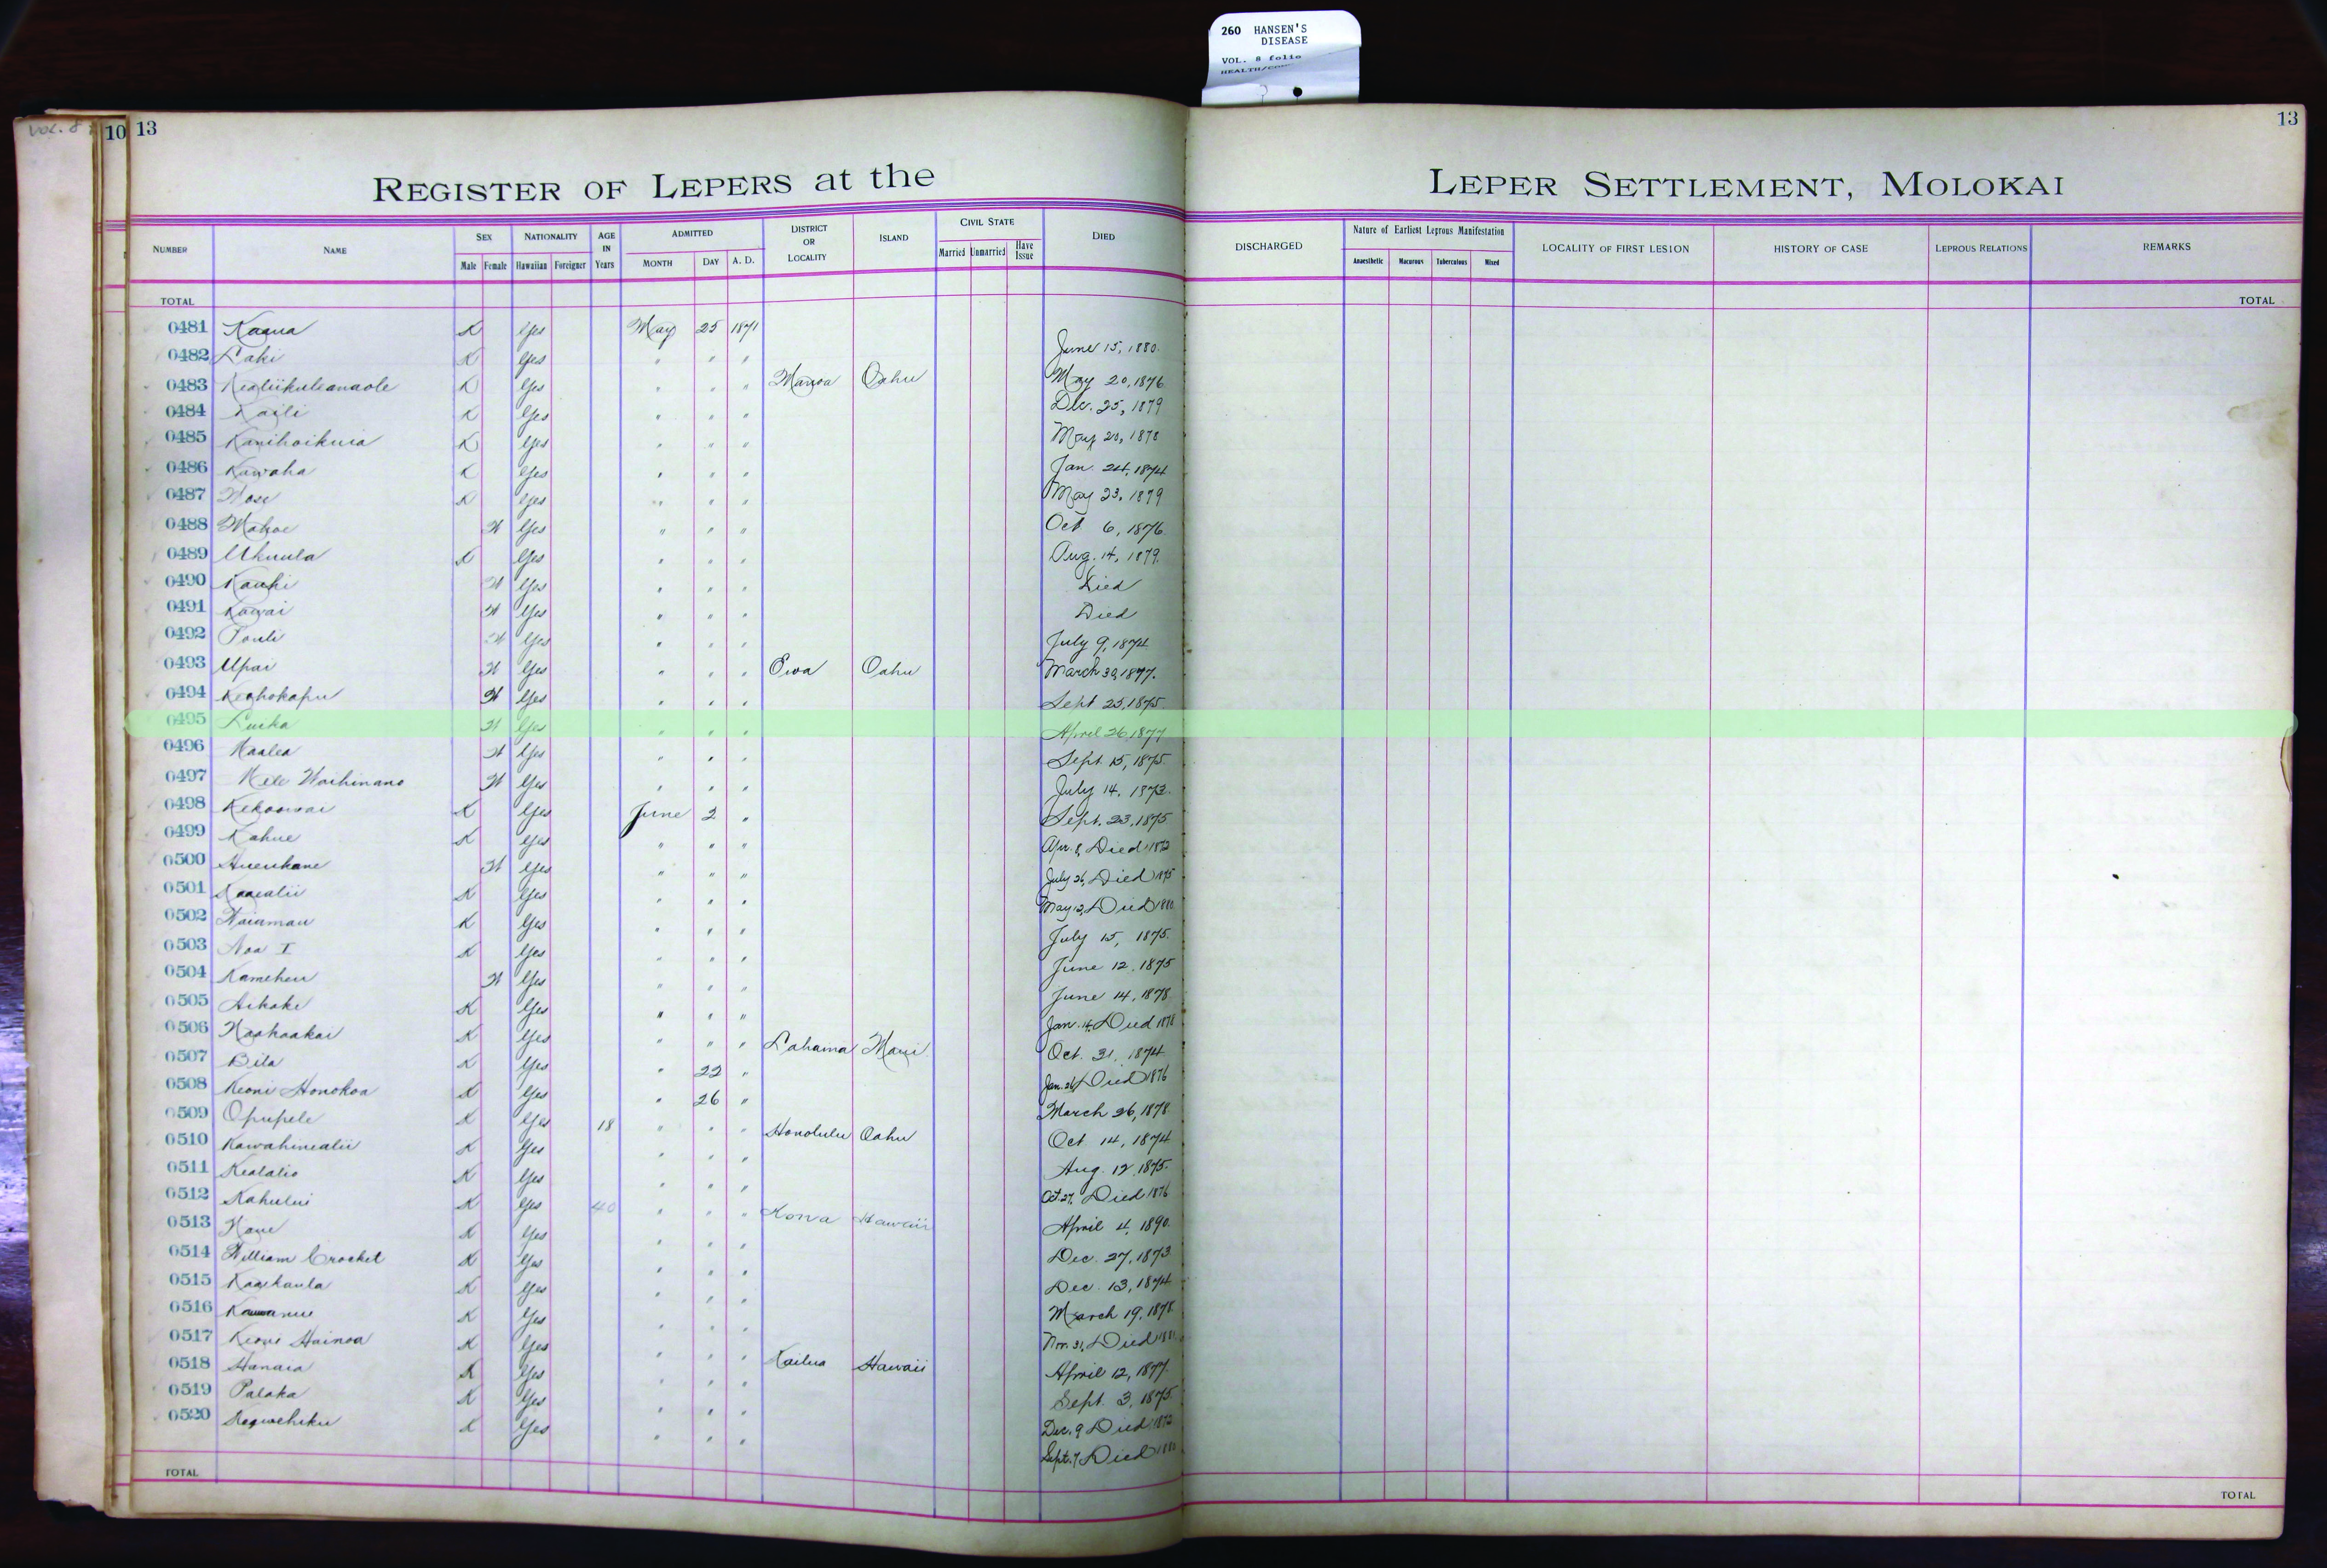 260 HANSEN'S
DISEASE
VOL. 8 folio
VOL. 8
10 13
13
REGISTER OF LEPERS at the
LEPER SETTLEMENT, MOLOKAI
NUMBER NAME SEX Male Female NATIONALITY Hawaiian Foreigner AGE IN Years ADMITTED MONTH DAY A. D. DISTRICT OR LOCALITY ISLAND CIVIL STATE Married Unmarried Have Issue DIED
DISCHARGED Nature of Earliest Leprous Manifestation Anaesthetic Macurous Tuberculous Mixed LOCALITY OF FIRST LESION HISTORY OF CASE LEPROUS RELATIONS REMARKS
TOTAL
TOTAL
0481 Kaaua K Yes May 25 1871
0482 Laki K Yes " " " June 15, 1880.
0483 Kealiikuleanaole K Yes " " " Manoa Oahu May 20, 1876
0484 Kaili K Yes " " " Dec. 25, 1879
0485 Kanihoikuia K Yes " " " May 20, 1878
0486 Kawaha K Yes " " " Jan. 24, 1874
0487 K Yes " " " May 23, 1879
0488 Mahoe W Yes " " " Oct 6, 1876.
0489 Ukuula K Yes " " " Aug. 14, 1879.
0490 Kauhi W Yes " " " Died
0491 Kawai W Yes " " " Died
0492 Pouli W Yes " " " July 9, 1874
0493 Upai W Yes " " " Ewa Oahu March 30, 1877.
0494 Keohokapu W Yes " " " Sept 25, 1875.
0495 Luika W Yes " " " April 26 1877
0496 Maalea W Yes " " " Sept. 15, 1875.
0497 Mele Waihinano W Yes " " " July 14, 1873.
0498 Kekoowai K Yes June 2 " Sept. 23, 1875
0499 Kahue K Yes " " " Apr. 8, Died 1872
0500 Hueukane W Yes " " " July 26, Died 1875
0501 Kaaealii K Yes " " " May 12, Died 1880
0502 Waiamau K Yes " " " July 15, 1875.
0503 Noa I K Yes " " " June 12, 1875
0504 Kameheu W Yes " " " June 14, 1878
0505 Aikake K Yes " " " Jan. 14, Died 1878
0506 Naahaakai K Yes " " " Lahaina Maui Oct. 31, 1874
0507 Bila K Yes " 22 " Jan. 26, Died 1876
0508 Keoni Honokoa K Yes " 26 " March 26, 1878
0509 Opupele K Yes 18 " " " Honolulu Oahu Oct 14, 1874
0510 Kawahinealii K Yes " " " Aug. 12, 1875.
0511 Kealalio K Yes " " " Oct. 27, Died 1876
0512 Kahului K Yes 40 " " " Kona Hawaii April 4, 1890.
0513 K Yes " " " Dec. 27, 1873
0514 William Crocket K Yes " " " Dec. 13, 1874
0515 Kaaikaula K Yes " " " March 19, 1878
0516 K Yes " " " Nov. 31, Died
0517 Keoni Hainoa K Yes " " " Kailua Hawaii April 12, 1877.
0518 Hanaia K Yes " " " Sept. 3, 1875.
0519 Palaka K Yes " " " Dec. 9 Died 1872
0520 K Yes " " " Sept. 7, Died
TOTAL
TOTAL